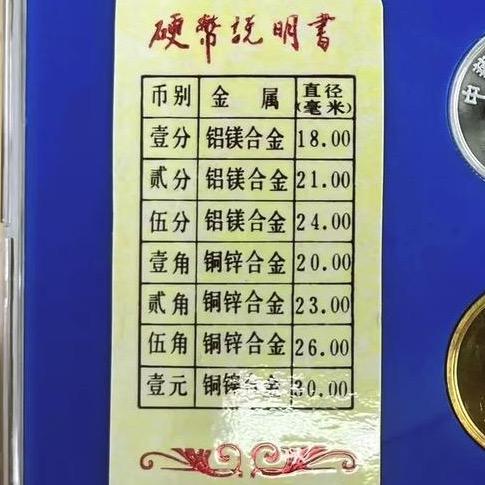 硬幣説明書
币别 金属 直径(毫米)
壹分 铝镁合金 18.00
贰分 铝镁合金 21.00
伍分 铝镁合金 24.00
壹角 铜锌合金 20.00
贰角 铜锌合金 23.00
伍角 铜锌合金 26.00
壹元 铜锌合金 30.00
中華